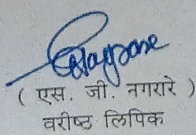 ( एस. जी. नगरारे )
वरीष्ठ लिपिक